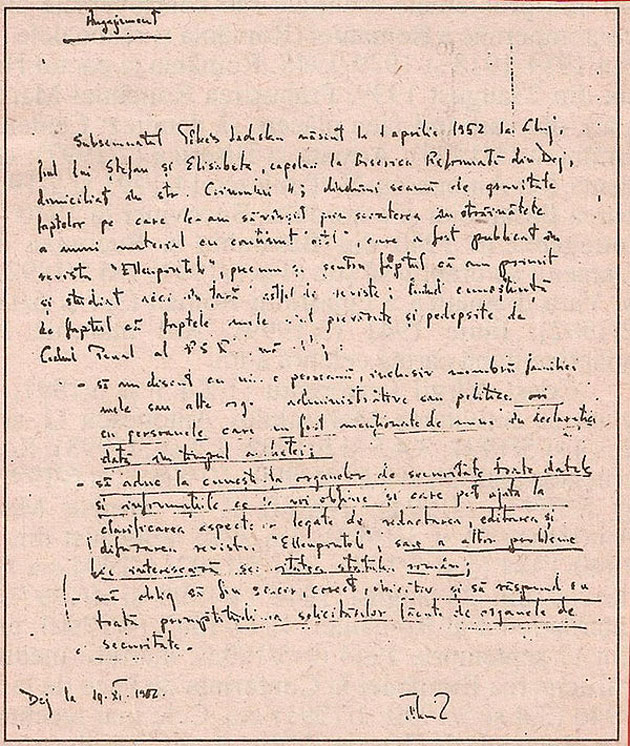 Angajament
Subsemnatul Tökes Ladislau născut la 1 aprilie 1952 la Cluj,
fiul lui Ștefan și Elisabeta, capelan la Biserica Reformată din Dej,
domiciliat în str. Crinului 4; dîndu-mi seama de gravitatea
faptelor pe care le-am săvîrșit prin scoaterea în străinătate
a unui material cu conținut ostil, care a fost publicat în
revista "Ellenpontok", precum și pentru faptul că am primit
și studiat aici în țară astfel de reviste; fiind cunoștiință
de faptul că faptele mele sînt prevăzute și pedepsite de
Codul Penal al RSR mă
- să nu discut cu nici o persoană, inclusiv membrii familiei
mele sau alte administrative sau politice ori
cu persoanele care au fost menționate de mine în declarația
dată în timpul anchetei;
- să aduc la cunoștința organelor de securitate toate datele
și informațiile ce le voi obține și care pot ajuta la
clarificarea aspectelor legate de redactarea, editarea și
difuzarea revistei "Ellenpontok", sau a altor probleme
ce interesează securitatea statului român;
- mă oblig să fiu sincer, corect, obiectiv și să răspund cu
toată promptitudinea solicitărilor făcute de organele de
securitate.
Dej la 19.XI.1982.